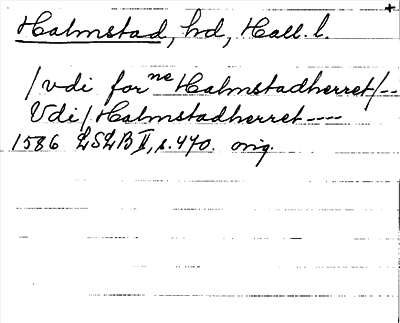 Halmstad, hd, Hall. l.
/vdi forne Halmstadherret/--
Vdi/Halmstadherret----
1586 LSLB II, s. 470. orig.